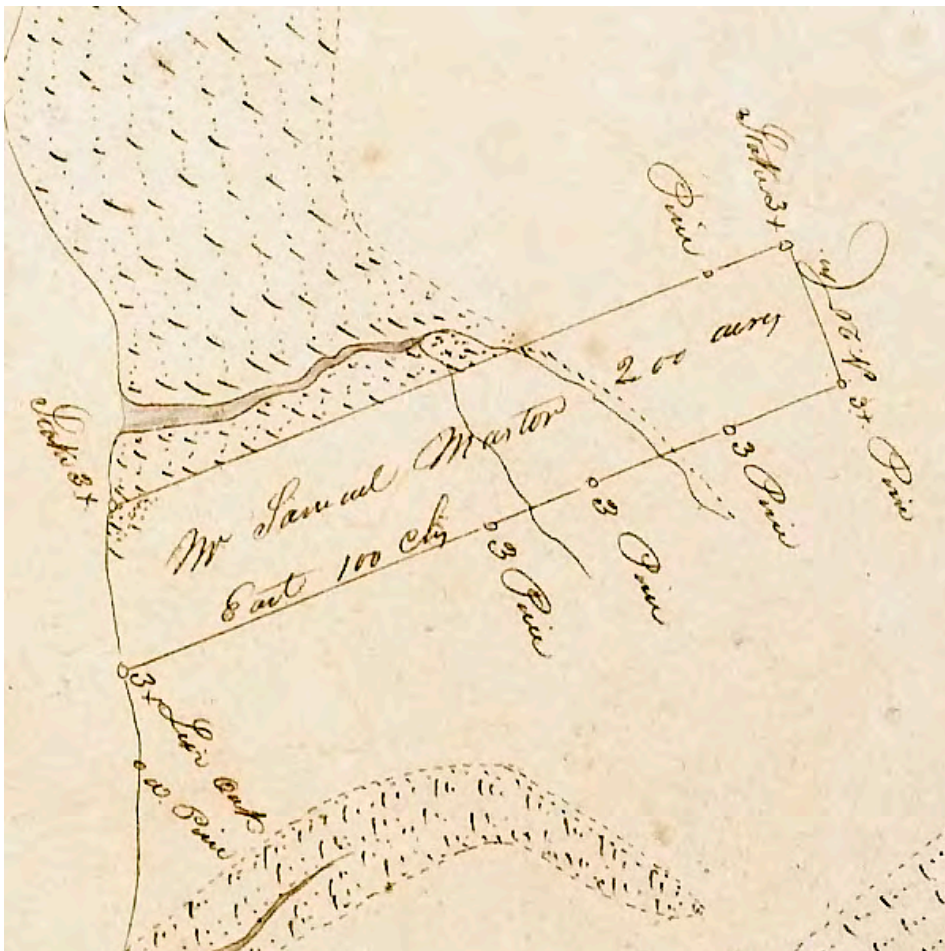 Stake 3+
Pine
N 20 chs
3+ Pine
200 acres
Mr Samuel Maston
East 100 chs
Stake 3+
3 Pine
3 Pine
3 Pine
3+ Live Oak
d. Pine